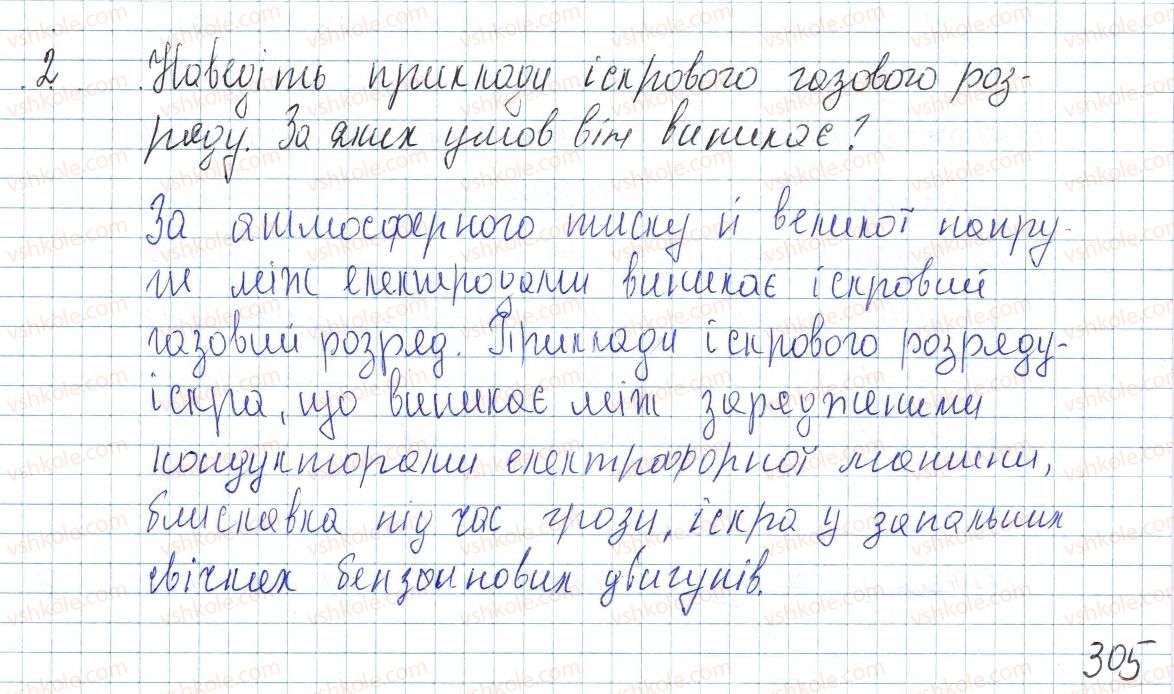 2. Наведіть приклади іскрового газового роз-
ряду. За яких умов він виникає?
За атмосферного тиску й великої напру-
ги між електродами виникає іскровий
газовий розряд. Приклади іскрового розряду-
іскра, що виникає між зарядженими
кондукторами електрофорної машини,
блискавка під час грози, іскра у запальних
свічках бензоинових двигунів.
305